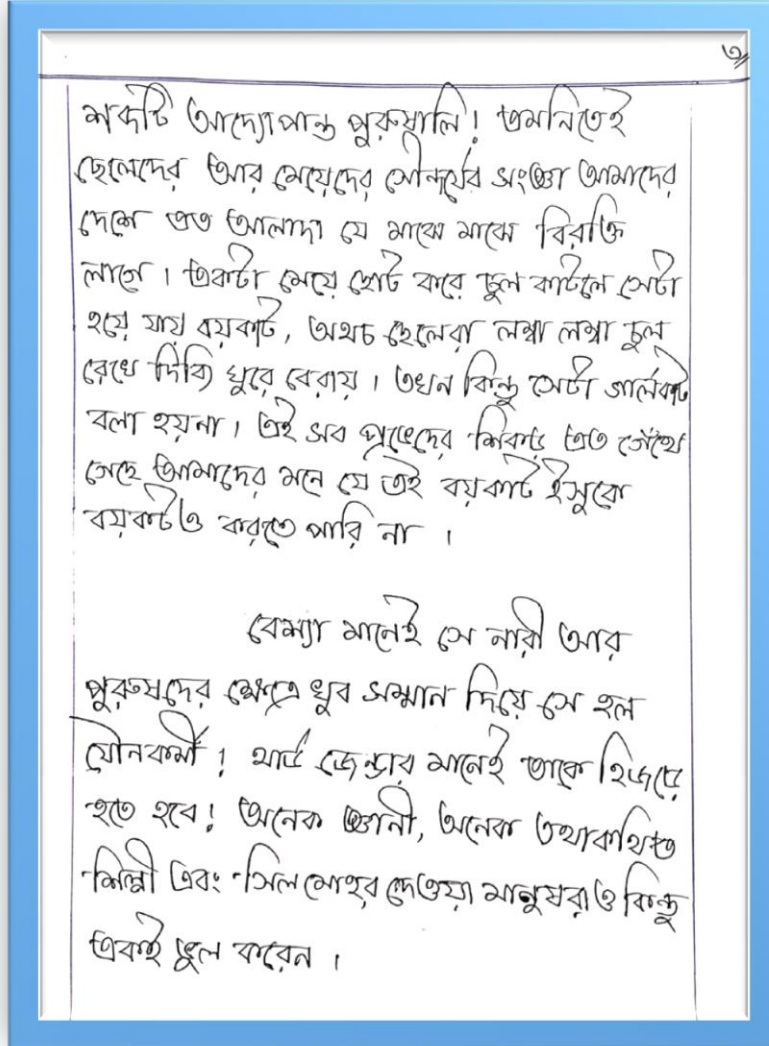 ৩/
শব্দটি আদ্যোপান্ত পুরুষালি! এমনিতেই
ছেলেদের আর মেয়েদের সৌন্দর্যের সংজ্ঞা আমাদের
দেশে এত আলাদা যে মাঝে মাঝে বিরক্তি
লাগে। একটা মেয়ে ছোট করে চুল কাটলে সেটা
হয়ে যায় বয়কাট, অথচ ছেলেরা লম্বা লম্বা চুল
রেখে দিব্যি ঘুরে বেরায়। তখন কিন্তু সেটা গার্লকাট
বলা হয়না। এই সব প্রভেদের শিকড় এত গেঁথে
গেছে আমাদের মনে যে এই বয়কাট ইস্যুকে
বয়কটও করতে পারি না।
বেশ্যা মানেই সে নারী আর
পুরুষদের ক্ষেত্রে খুব সম্মান দিয়ে সে হল
যৌনকর্মী! থার্ড জেন্ডার মানেই তাকে হিজড়ে
হতে হবে! অনেক জ্ঞানী, অনেক তথাকথিত
শিল্পী এবং সিলমোহর দেওয়া মানুষরাও কিন্তু
একই ভুল করেন।